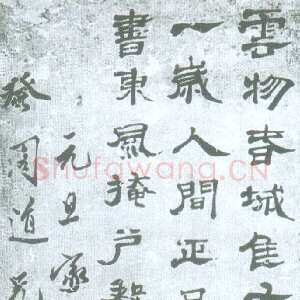 雲物春城隹
一歲人間正
書東風掩户
元旦家
發周道
Shufawang.CN